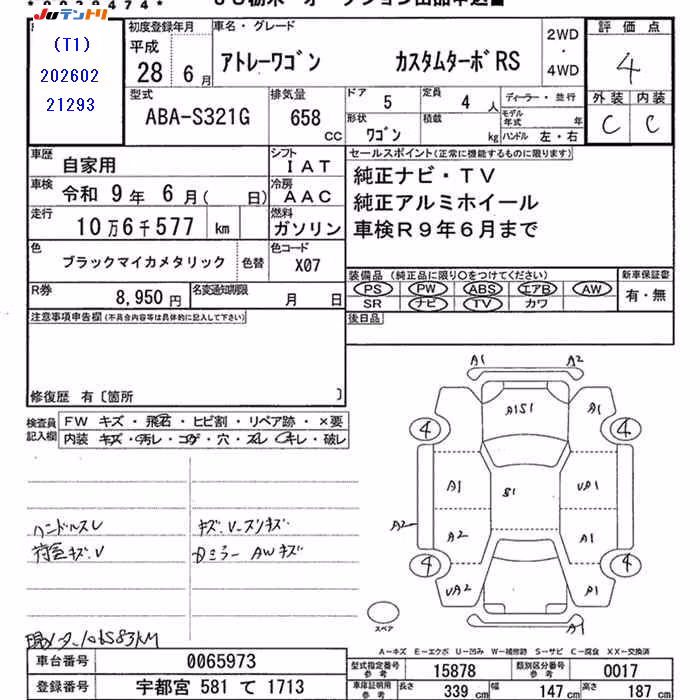 *0029474*
JUテントリ
(T1)
202602
21293
初度登録年月 車名・グレード
平成 28年 6月 アトレーワゴン カスタムターボRS 2WD・4WD
評価点 4
外装 内装
C C
型式 ABA-S321G 排気量 658 CC
ドア 5 定員 4人 ディーラー・並行
形状 ワゴン 積載 kg モデル年式 年
ハンドル 左・右
車歴 自家用 シフト IAT
車検 令和 9年 6月( 日) 冷房 AAC
走行 10万6千577 km 燃料 ガソリン
色 ブラックマイカメタリック 色替 色コード X07
R券 8,950円 名変通知期限 月 日
セールスポイント(正常に機能するものに限ります)
純正ナビ・TV
純正アルミホイール
車検R9年6月まで
装備品 (純正品に限り○をつけてください) 新車保証書
PS PW ABS エアB AW 有・無
SR ナビ TV カワ
後日品
注意事項申告欄(不具合内容等は具体的に記入して下さい)
修復歴 有〔箇所 〕
検査員記入欄 FW キズ・飛石・ヒビ割・リペア跡・×要
内装 キズ・汚レ・コゲ・穴・スレ・キレ・破レ
ハンドルスレ
荷室キズ、V
キズ、V-スリキズ
Dミラー AWキズ
現メーター106583KM
A1 A2
A1S1 A1
4 4
A1 S1 UA1
A2 A2 A1
4 4
UA2 A1
A1
スペア
A-キズ E-エクボ U-凹み W-補修跡 S-サビ C-腐食 XX-交換済
車台番号 0065973
登録番号 宇都宮 581 て 1713
型式指定番号 参考 15878 類別区分番号 参考 0017
車庫証明用 参考 長さ 339cm 幅 147cm 高さ 187cm